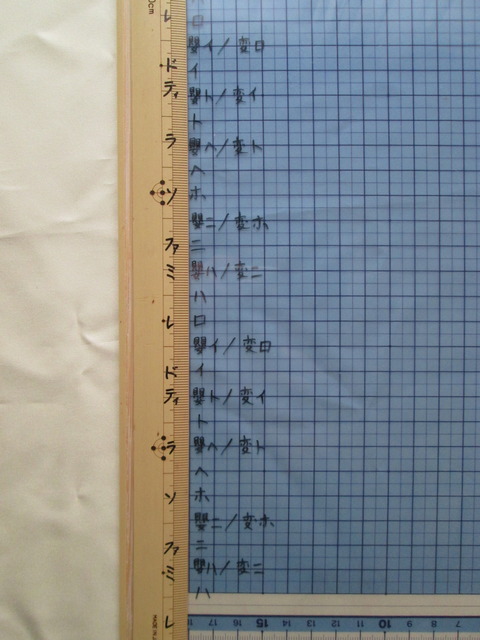 レ
ロ
嬰イ/変ロ
ド
イ
ティ
嬰ト/変イ
ト
ラ
嬰ヘ/変ト
ヘ
ソ
ホ
嬰ニ/変ホ
ファ
ニ
ミ
嬰ハ/変ニ
ハ
レ
ロ
嬰イ/変ロ
ド
イ
ティ
嬰ト/変イ
ト
ラ
嬰ヘ/変ト
ヘ
ソ
ホ
嬰ニ/変ホ
ファ
ニ
ミ
嬰ハ/変ニ
ハ
レ
17 16 15 14 13 12 11 10 9 8 7